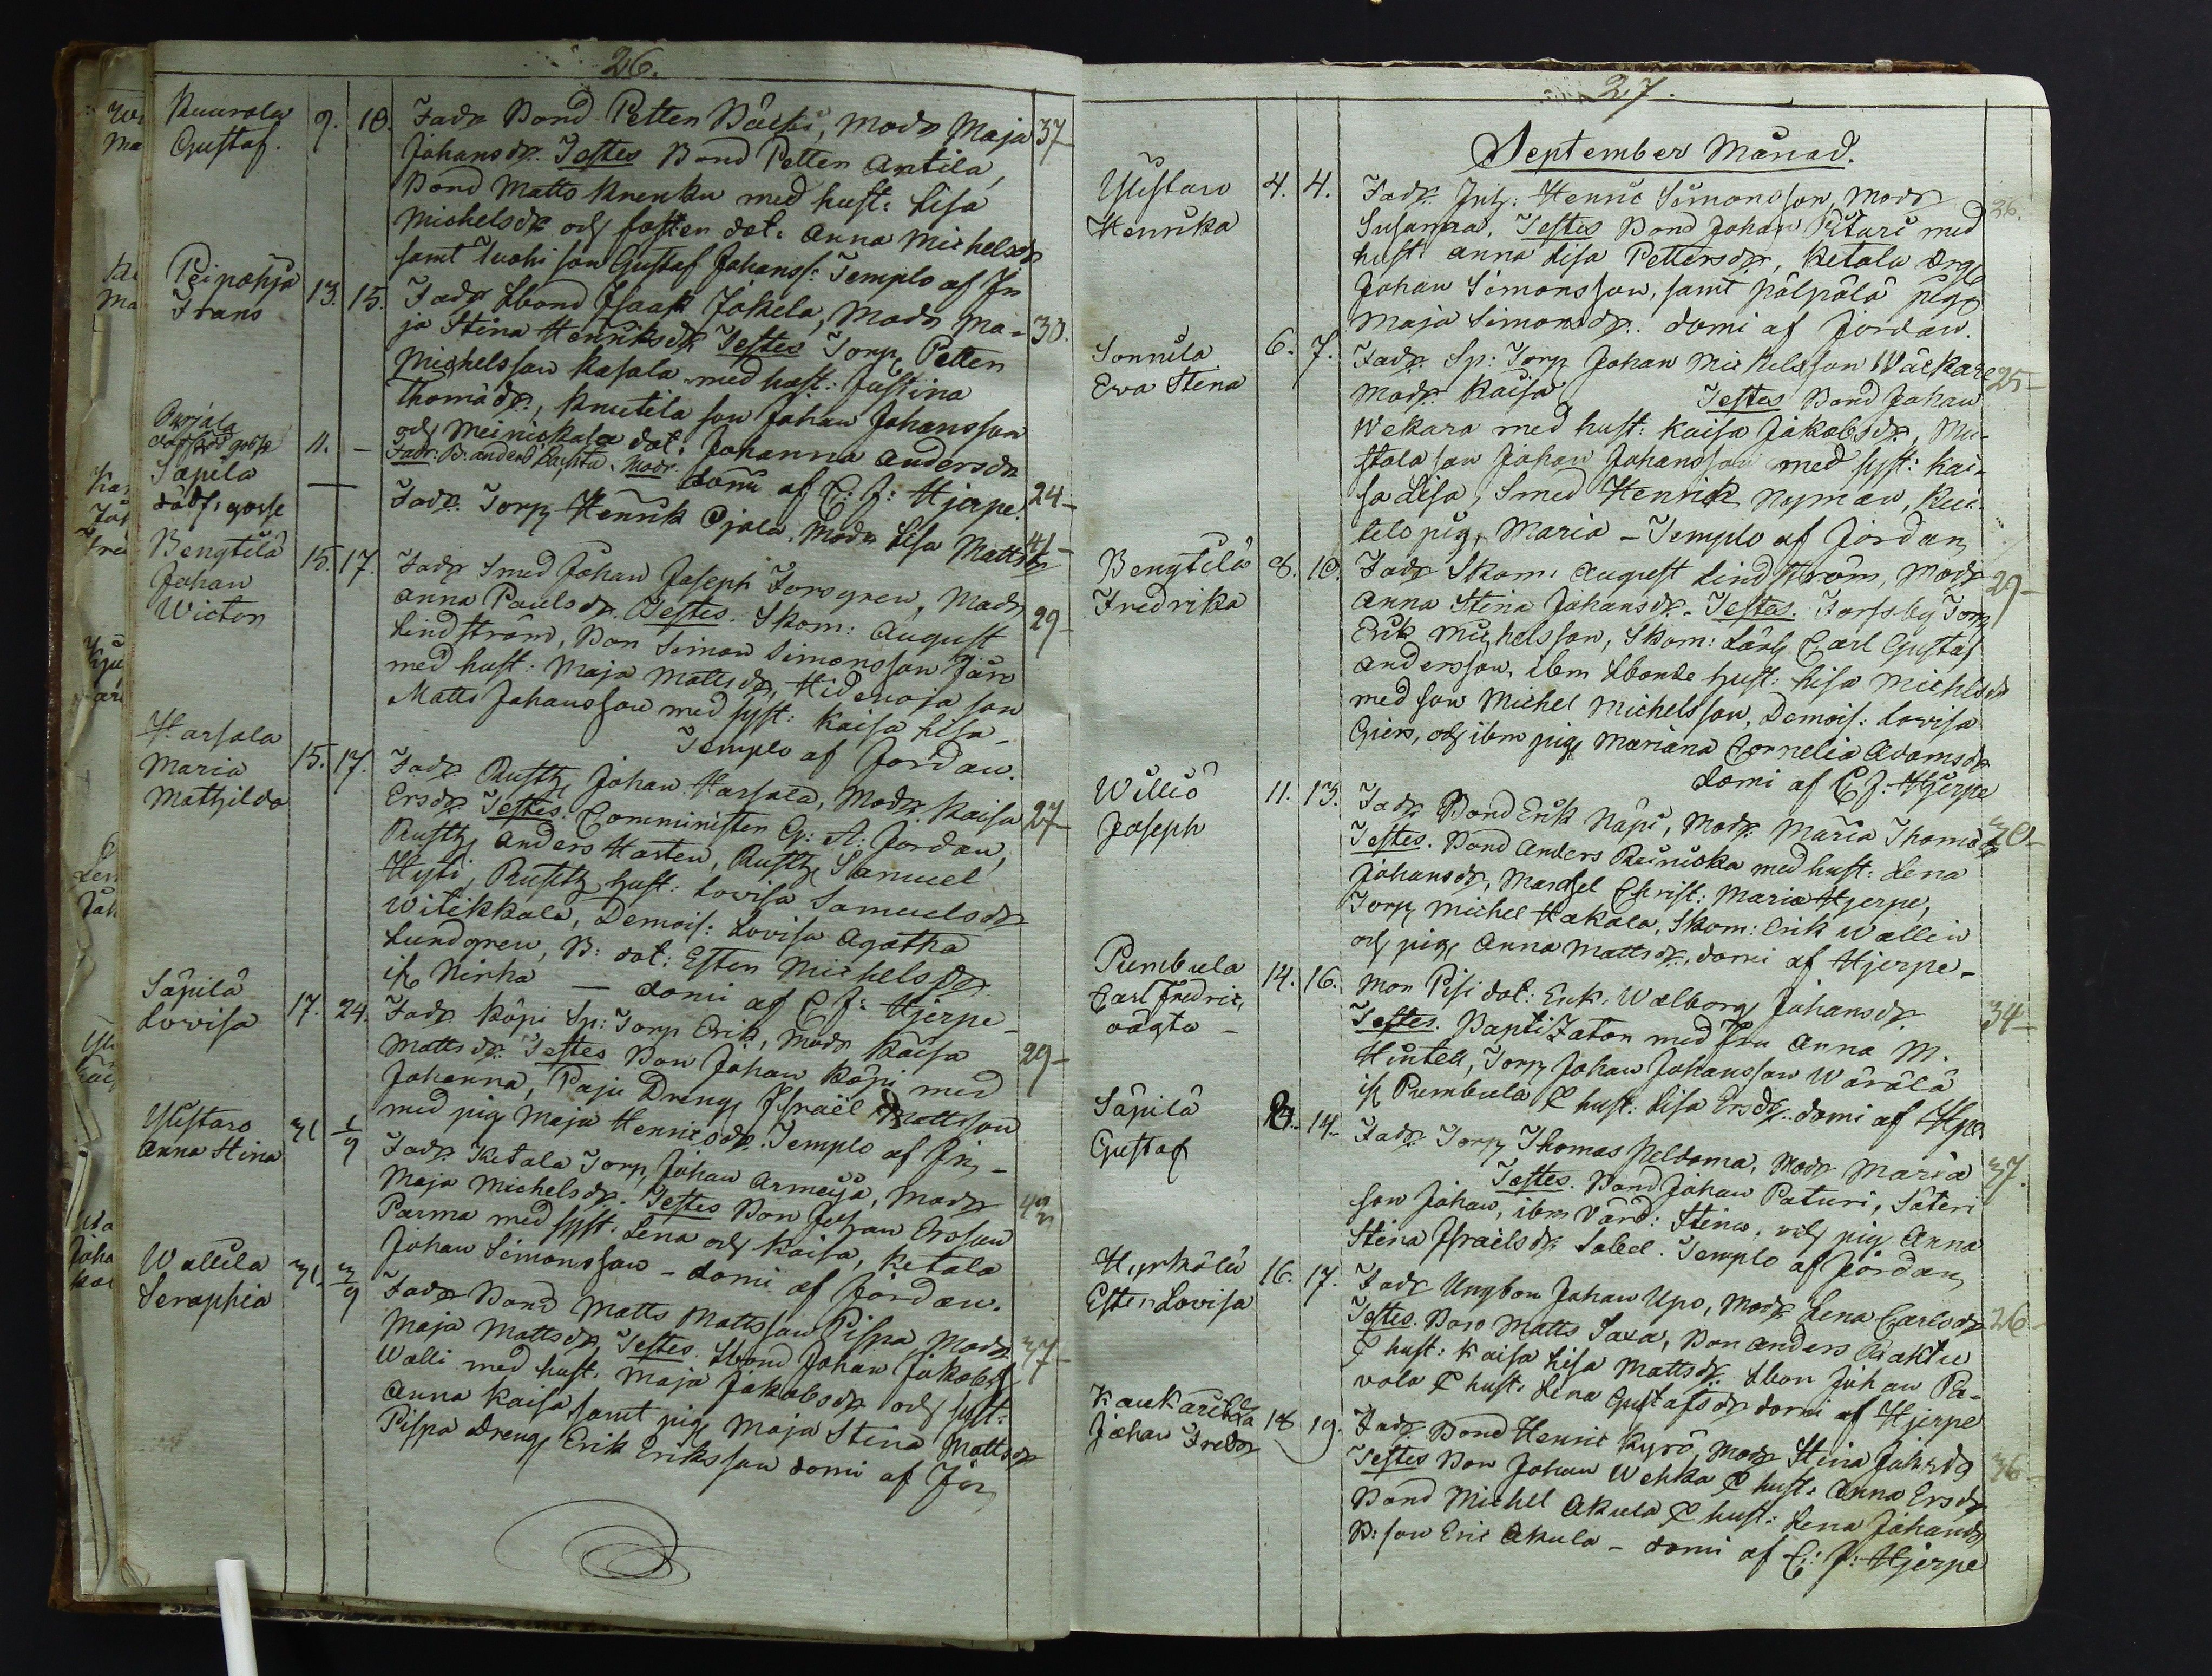 26.
Kuurola 9. 10. Fadr Bond Petter Bäcki, Modr Maja 37
Gustaf. Johansdr. Testes Bond Petter Antila,
Bond Matts Krenku med hust: Lisa
Michelsdr och fosterdot. Anna Michelsdr
samt Luohi son Gustaf Johanss: Templo af Jn
Peipohja 13. 15. Fadr Lbond Isaak Jokela, Modr Ma- 30.
Frans ja Stina Henriksdr Testes Torp Petter
Michelsson Kasala med hust: Justina
Thomädr, Knutila son Johan Johansson
och Meinickala dot. Johanna Andersdr
domi af C: J: Hjerpe.
dödfödd gosse 11. - Fadr: B. Anders Modr 24
Säpilä — Fadr. Torp Henrik Ojala, Modr Lisa Mattsdr 41
dödf. gosse
Bengtilä 15. 17. Fadr Smed Johan Joseph Forsgren, Modr 29
Johan Anna Paulsdr. Testes. Skom: August
Wictor Lindström, Bon Simon Simonsson Järw
med hust: Maja Mattsdr, Hidenoja son
Matts Johansson med syst: Kaisa Lisa-
Templo af Jordan.
Harjala 15. 17. Fadr Rusth Johan Harjala, Modr. Kaisa 27
Maria Ersdr. Testes: Comministern G: A: Jordan,
Mathilda Rusth Anders Harten, Rusth Samuel
Hyti, Rusth hust: Lovisa Samuelsdr
Witikkala, Demois: Lovisa Agatha
Lundgren, B: dot: Ester Michelsdr
ifr Kirha — domi af C J: Hjerpe-
Säpilä 17. 24. Fadr Köpi Sp: Torp Erik, Modr Kaisa 29-
Lovisa Mattsdr. Testes Bon Johan Köpi med
Johanna, Paju Dreng Israël Mattsson
med pig Maja Henricsdr. Templo af Jn-
Ylistaro 31 1/9 Fadr Ketala Torp Johan Armeija, Modr 42
Anna Stina Maja Michelsdr. Testes Bon Johan Ersson
Parma med syst: Lena och Kaisa, Ketala
Johan Simonsson - domi af Jordan.
Wallila 31. 3/9 Fadr Bond Matts Mattsson Pispa, Modr 37-
Seraphia Maja Mattsdr, Testes. Lbond Johan Jakobss
Walli med hust. Maja Jakobsdr och syst:
Anna Kaisa, samt pig Maja Stina Mattsdr
Pispa dreng Erik Eriksson domi af Jn
27.
September Månad.
Ylistaro 4. 4. Fadr. Inh: Henric Simonsson, Modr 26.
Henrika Susanna. Testes Bond Johan Pituri med
hust: Anna Lisa Pettersdr, Ketala dreng
Johan Simonsson, samt Pälpälä pig
Maja Simonsdr. domi af Jordan.
Sonnila 6. 7. Fadr. Sp: Torp Johan Mickelsson Wäckare 25-
Eva Stina Modr. Kaisa Testes Bond Johan
Wekara med hust: Kaisa Jakobsdr, Mu-
stola son Johan Johansson med syst: Kai-
sa Lisa, Smed Henrik Nyman, Kui-
tilo pig. Maria - Templo af Jordan
Bengtilä 8. 10. Fadr Skom. August Lindström, Modr 29-
Fredrika Anna Stina Johansdr. Testes. Forsby Torp
Erik Michelsson, Skom: Lärl. Carl Gustaf
Andersson, ibm Lbonde hust: Lisa Michelsdr
med son Michel Michelsson, Demois: Lovisa
Giers, och ibm pig Mariana Cornelia Adamsdr
domi af C J: Hjerpe
Williö 11. 13. Fadr Bond Erik Näpi, Modr. Maria Thomädr 30-
Joseph Testes. Bond Anders Reinicka med hust: Lena
Johansdr, Mansel Christ: Maria Hjerpe,
Torp Michel Hakala, Skom: Erik Wallin
och pig Anna Mattsdr, domi af Hjerpe-
Pumbula 14. 16. Mor Pisi dot: Enk. Walborg Johansdr. 34-
Carl Fredric, Testes. Baptizator med Fru Anna M.
oägta - Hintell, Torp Johan Johansson Wärälä
ifr Pumbula & hust: Lisa Ersdr. domi af Hjpe
Säpilä 13. 14. Fadr. Torp Thomas Peldoma, Modr Maria 37.
Gustaf Testes. Bond Johan Paturi, Säteri
son Johan, ibm Värd: Stina, och pig Anna
Stina Israëlsdr Sabel. Templo af Jordan
Hyrkölä 16. 17. Fadr Ungbon Johan Upo, Modr Lena Carlsdr 26-
Ester Lovisa Testes. Bon Matts Saxa, Bon Anders Raktu
& hust: Kaisa Lisa Mattsdr. Lbon Johan Pa-
vola & hust: Lena Gustafsdr domi af Hjerpe
Kaukarikka 18 19. Fadr. Bond Henric Kyrö, Modr Stina Johsdr 36-
Johan Fredr Testes Bon Johan Wehka & hust: Anna Ersdr
Bond Michel Akula & hust: Lena Johansdr
B: son Eric Akula - domi af C: J: Hjerpe